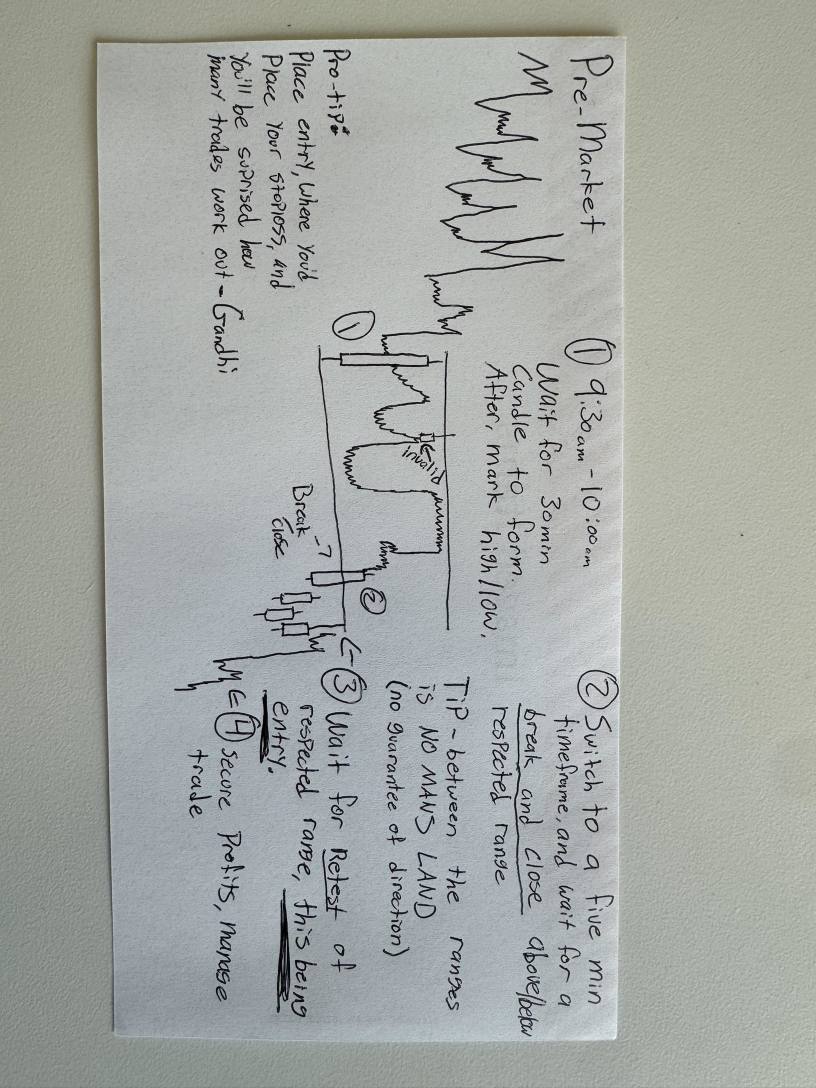 Pre-Market
① 9:30am - 10:00am
Wait for 30min
Candle to form.
After, mark high/low.
② Switch to a five min
timeframe, and wait for a
break and close above/below
respected range
TiP - between the ranges
is NO MANS LAND
(no guarantee of direction)
invalid
①
②
Break
Close
③ Wait for Retest of
respected range, this being
entry.
④ secure Profits, manage
trade
Pro-tip:
Place entry, where you'd
Place your stoploss, and
You'll be suprised how
many trades work out - Gandhi